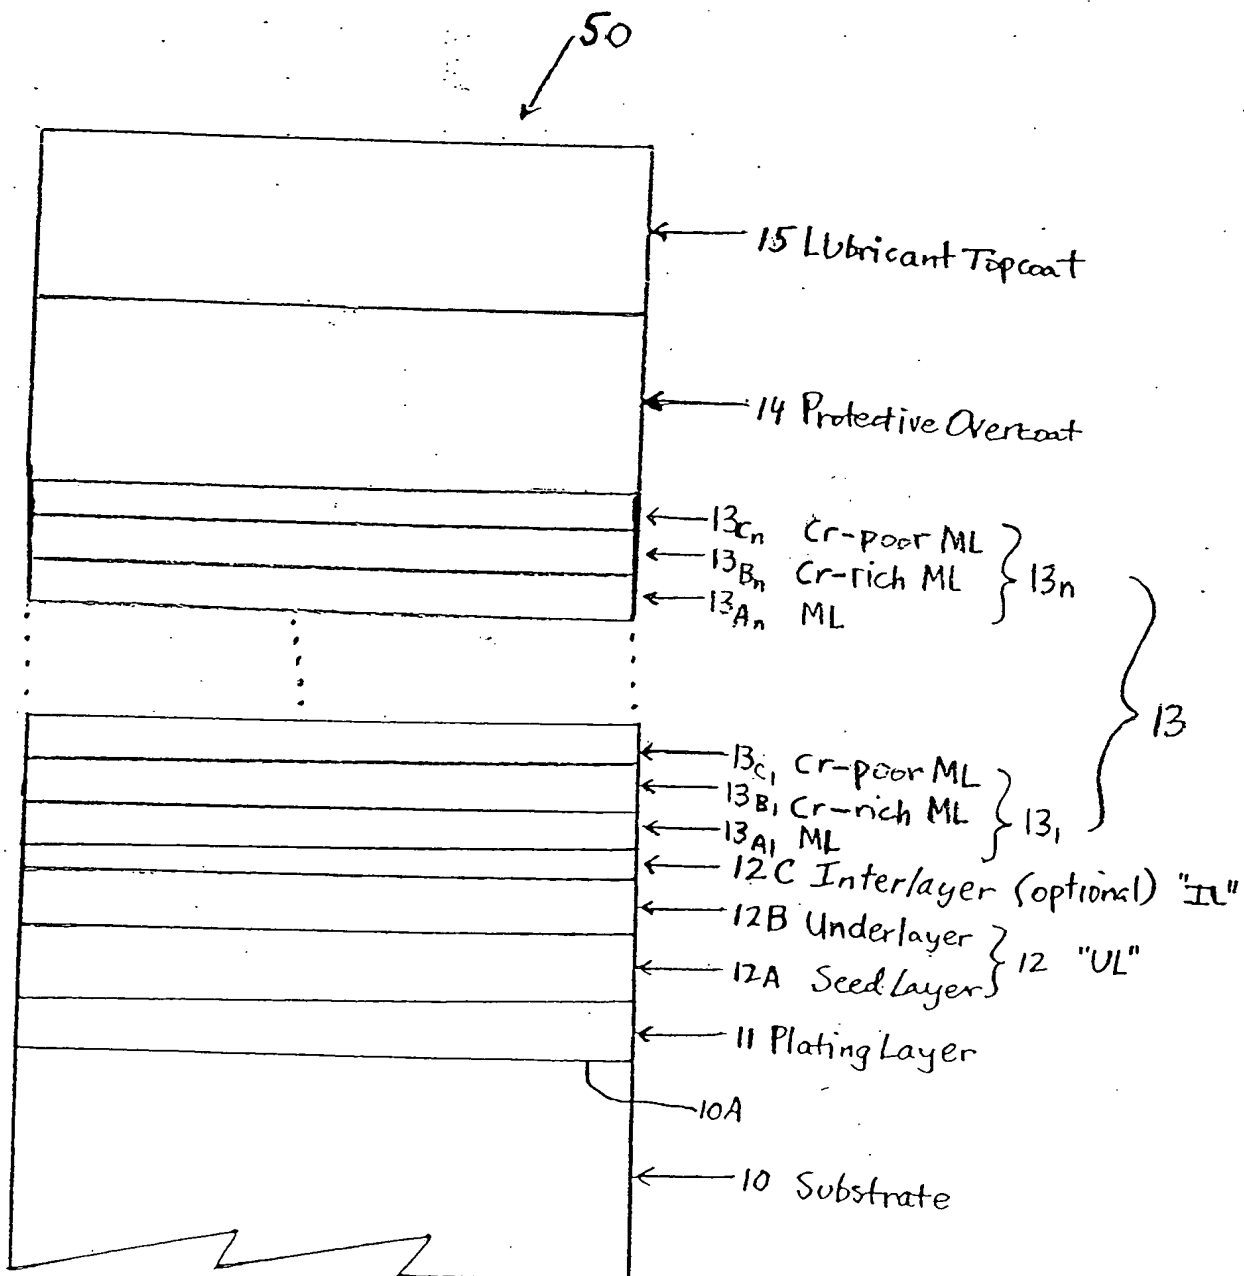 50
15 Lubricant Topcoat
14 Protective Overcoat
13Cn Cr-poor ML
13Bn Cr-rich ML
13n
13An ML
13
13C1 Cr-poor ML
13B1 Cr-rich ML
131
13A1 ML
12C Interlayer (optional) "IL"
12B Underlayer
12 "UL"
12A Seed Layer
11 Plating Layer
10A
10 Substrate